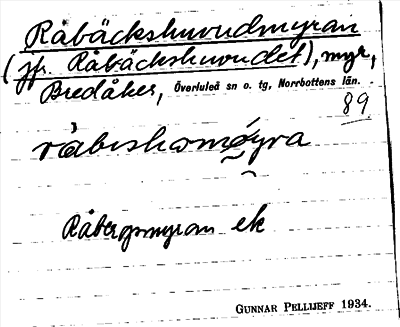 Råbäckshuvudmyran
(jfr. Råbäckshuvudet), myr,
Bredåker, Överluleå sn o. tg, Norrbottens län.
89
Råbergsmyran ek
GUNNAR PELLIJEFF 1934.